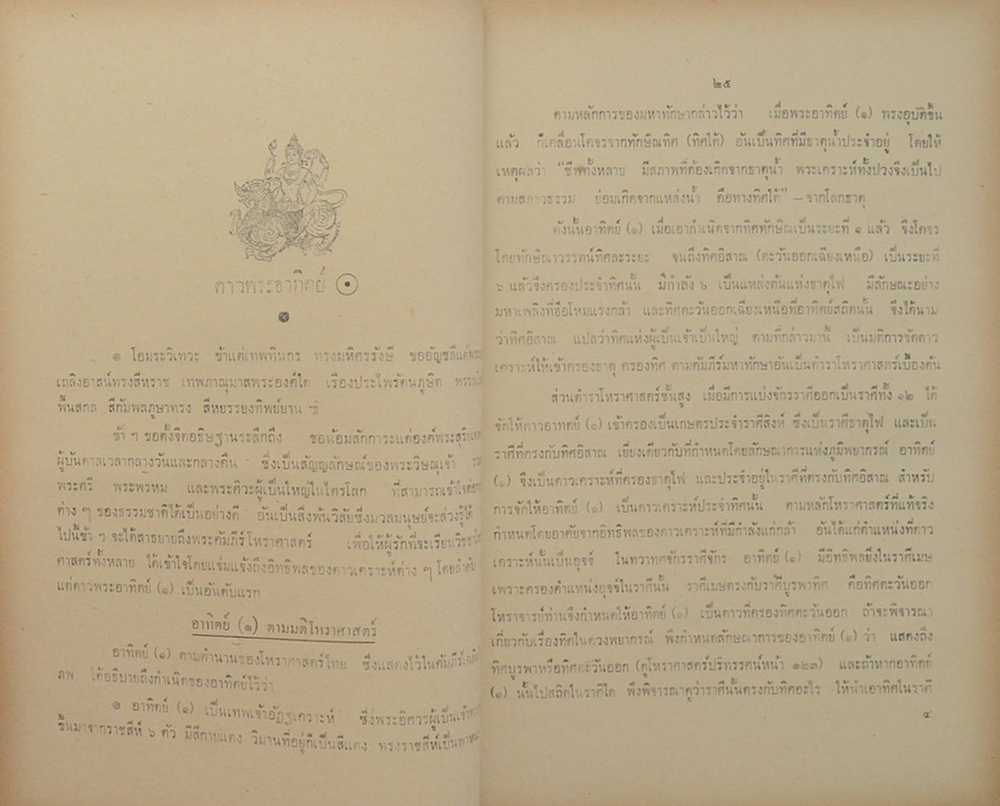 ดาวพระอาทิตย์
๑ โอมระวิเทวะ ข้าแต่เทพทินกร ทรงมหิศรรังษี ขออัญชลีแด่พระ
เถลิงอาสน์ทรงสีหราช เทพภาณุมาสพระองค์ใด เรืองประไพรัตนภูษิต
พื้นสกล สีกัมพลภูษาทรง สีหยรรยงทิพย์ยาน ฯ
ข้า ฯ ขอตั้งจิตอธิษฐานระลึกถึง ขอน้อมสักการะแด่องค์พระสุริย
ผู้บันดาลเวลากลางวันและกลางคืน ซึ่งเป็นสัญญลักษณ์ของพระวิษณุเจ้า
พระศรี พระพรหม และพระศิวะผู้เป็นใหญ่ในไตรโลก ที่สามารถเข้าใจ
ต่าง ๆ ของธรรมชาติได้เป็นอย่างดี อันเป็นสิ่งพ้นวิสัยซึ่งมวลมนุษย์จะล่วงรู้ได้
ไปนี้ข้า ฯ จะได้สาธยายถึงพระคัมภีร์โหราศาสตร์ เพื่อให้ผู้รักที่จะเรียน
ศาสตร์ทั้งหลาย ได้เข้าใจโดยแจ่มแจ้งถึงอิทธิพลของดาวเคราะห์ต่าง ๆ โดยลำดับ
แต่ดาวพระอาทิตย์ (๑) เป็นอันดับแรก
อาทิตย์ (๑) ตามมติโหราศาสตร์
อาทิตย์ (๑) ตามตำนานของโหราศาสตร์ไทย ซึ่งแสดงไว้ในคัมภีร์
ภพ ได้อธิบายถึงกำเนิดของอาทิตย์ไว้ว่า
๑ อาทิตย์ (๑) เป็นเทพเจ้าอัฏฐเคราะห์ ซึ่งพระอิศวรผู้เป็นเจ้า
ขึ้นมาจากราชสีห์ ๖ ตัว มีสีกายแดง วิมานที่อยู่ก็เป็นสีแดง ทรงราชสีห์เป็นพาหนะ
๒๕
ตามหลักการของมหาทักษากล่าวไว้ว่า เมื่อพระอาทิตย์ (๑) ทรงอุบัติขึ้น
แล้ว ก็เคลื่อนโคจรจากทักษิณทิศ (ทิศใต้) อันเป็นทิศที่มีธาตุน้ำประจำอยู่ โดยให้
เหตุผลว่า “ชีวิตทั้งหลาย มีสภาพที่ต้องเกิดจากธาตุน้ำ พระเคราะห์ทั้งปวงจึงเป็นไป
ตามสภาวธรรม ย่อมเกิดจากแหล่งน้ำ คือทางทิศใต้” – จากโลกธาตุ
ดังนั้นอาทิตย์ (๑) เมื่อเอากำเนิดจากทิศทักษิณเป็นระยะที่ ๑ แล้ว จึงโคจร
โดยทักษิณาวรรตน์ทิศละระยะ จนถึงทิศอิสาณ (ตะวันออกเฉียงเหนือ) เป็นระยะที่
๖ แล้วจึงครองประจำทิศนั้น มีกำลัง ๖ เป็นแหล่งต้นแห่งธาตุไฟ มีลักษณะอย่าง
มหาเพลิงที่ฮือโหมแรงกล้า และทิศตะวันออกเฉียงเหนือที่อาทิตย์สถิตนั้น จึงได้นาม
ว่าทิศอิสาณ แปลว่าทิศแห่งผู้เป็นเจ้าเป็นใหญ่ ตามที่กล่าวมานี้ เป็นมติการจัดดาว
เคราะห์ให้เข้าครองธาตุ ครองทิศ ตามคัมภีร์มหาทักษาอันเป็นตำราโหราศาสตร์เบื้องต้น
ส่วนตำราโหราศาสตร์ชั้นสูง เมื่อมีการแบ่งจักรราศีออกเป็นราศีทั้ง ๑๒ ได้
จัดให้ดาวอาทิตย์ (๑) เข้าครองเป็นเกษตรประจำราศีสิงห์ ซึ่งเป็นราศีธาตุไฟ และเป็น
ราศีที่ตรงกับทิศอิสาณ เยี่ยงเดียวกับที่กำหนดโดยลักษณาการแห่งภูมิพยากรณ์ อาทิตย์
(๑) จึงเป็นดาวเคราะห์ที่ครองธาตุไฟ และประจำอยู่ในราศีที่ตรงกับทิศอิสาณ สำหรับ
การจัดให้อาทิตย์ (๑) เป็นดาวเคราะห์ประจำทิศนั้น ตามหลักโหราศาสตร์ที่แท้จริง
กำหนดโดยอาศัยจากอิทธิพลของดาวเคราะห์ที่มีกำลังแก่กล้า อันได้แก่ตำแหน่งที่ดาว
เคราะห์นั้นเป็นอุจจ์ ในทวาทศจักรราศีจักร อาทิตย์ (๑) มีอิทธิพลยิ่งในราศีเมษ
เพราะครองตำแหน่งอุจจ์ในราศีนั้น ราศีเมษตรงกับราศีบูรพาทิศ คือทิศตะวันออก
โหราจารย์ท่านจึงกำหนดให้อาทิตย์ (๑) เป็นดาวที่ครองทิศตะวันออก ถ้าจะพิจารณา
เกี่ยวกับเรื่องทิศในดวงพยากรณ์ พึงกำหนดลักษณาการของอาทิตย์ (๑) ว่า แสดงถึง
ทิศบูรพาหรือทิศตะวันออก (ดูโหราศาสตร์ปริทรรศน์หน้า ๑๒๓) และถ้าหากอาทิตย์
(๑) นั้นไปสถิตในราศีใด พึงพิจารณาดูว่าราศีนั้นตรงกับทิศอะไร ให้นำเอาทิศในราศี
๔